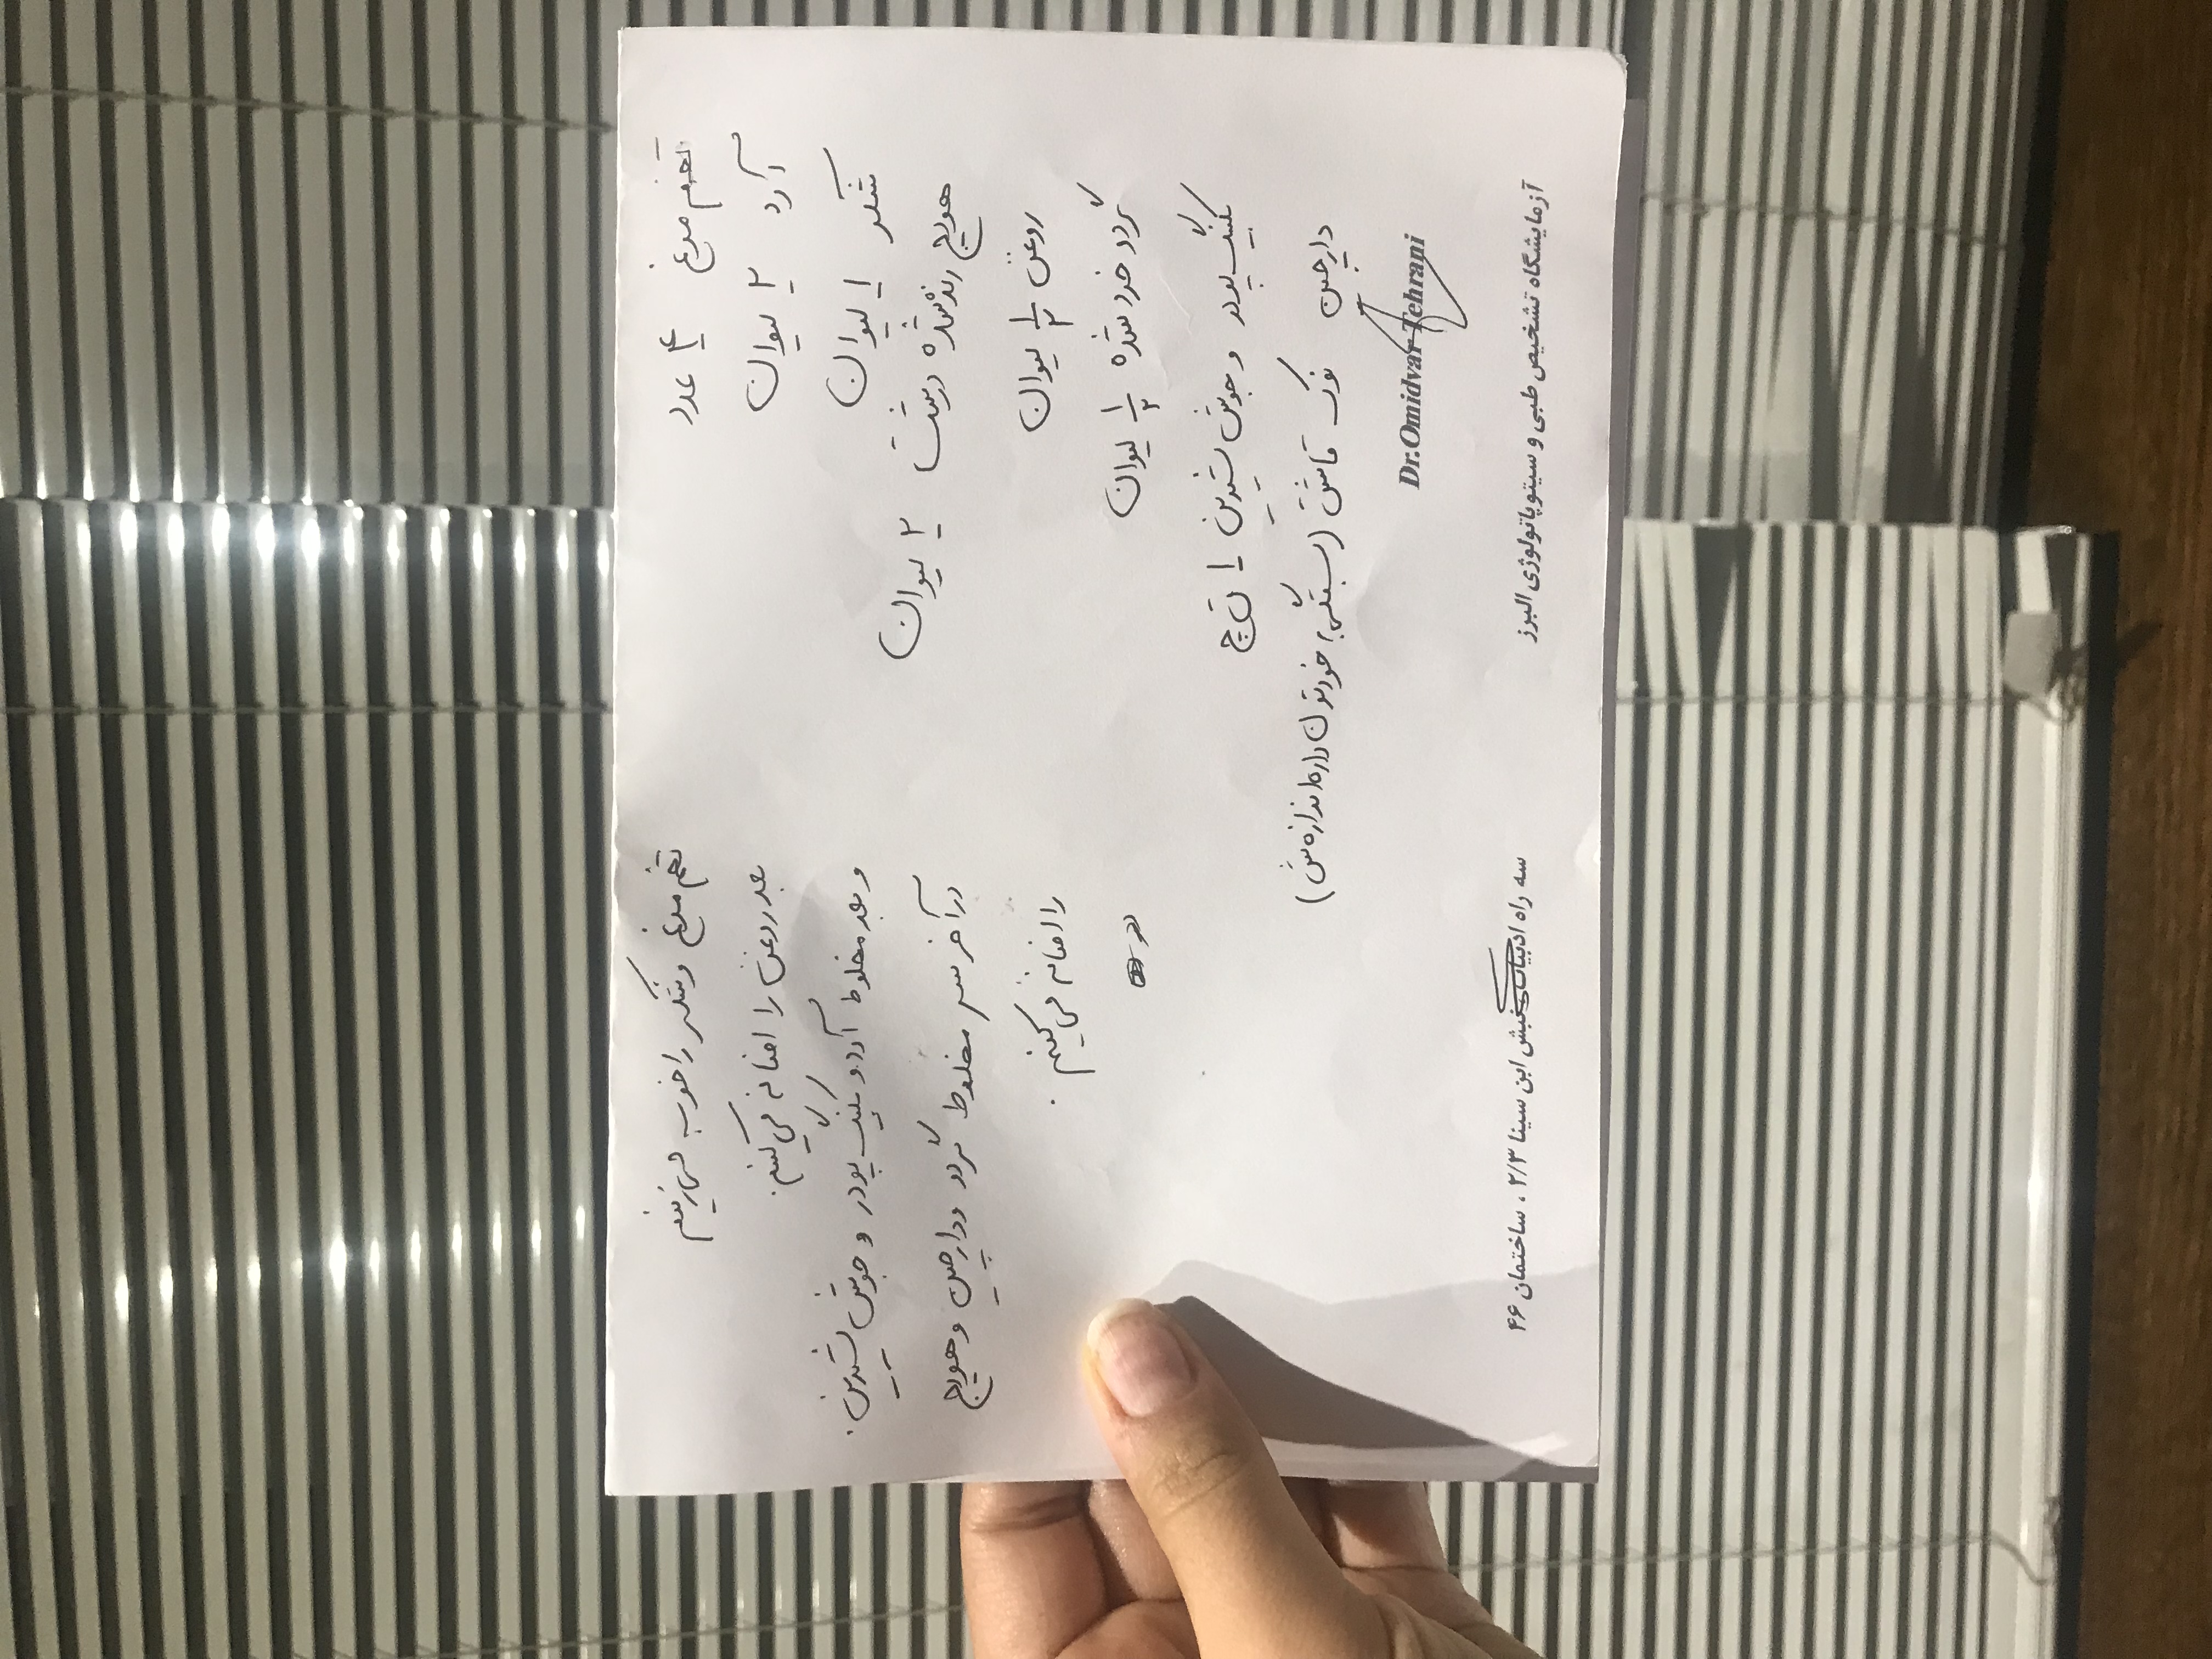 تخم مرغ ۴ عدد
آرد ۲ لیوان
شکر ۱ لیوان
هویج رنده شده درشت ۲ لیوان
روغن ۱/۲ لیوان
گردو خرد شده ۱/۲ لیوان
بکینگ پودر و جوش شیرین ۱ ق چ
دارچین نوک قاشق (بستگی به خودتون داره اندازه ش)
تخم مرغ و شکر را خوب می‌زنیم
بعد روغن را اضافه می‌کنیم.
و بعد مخلوط آرد و بکینگ پودر و جوش شیرین.
در آخر سر مخلوط گردو و دارچین و هویج
را اضافه می‌کنیم.
Dr.Omidvar Tehrani
آزمایشگاه تشخیص طبی و سیتوپاتولوژی البرز
سه راه ادبیات نبش ابن سینا ۲/۳ ، ساختمان ۴۶